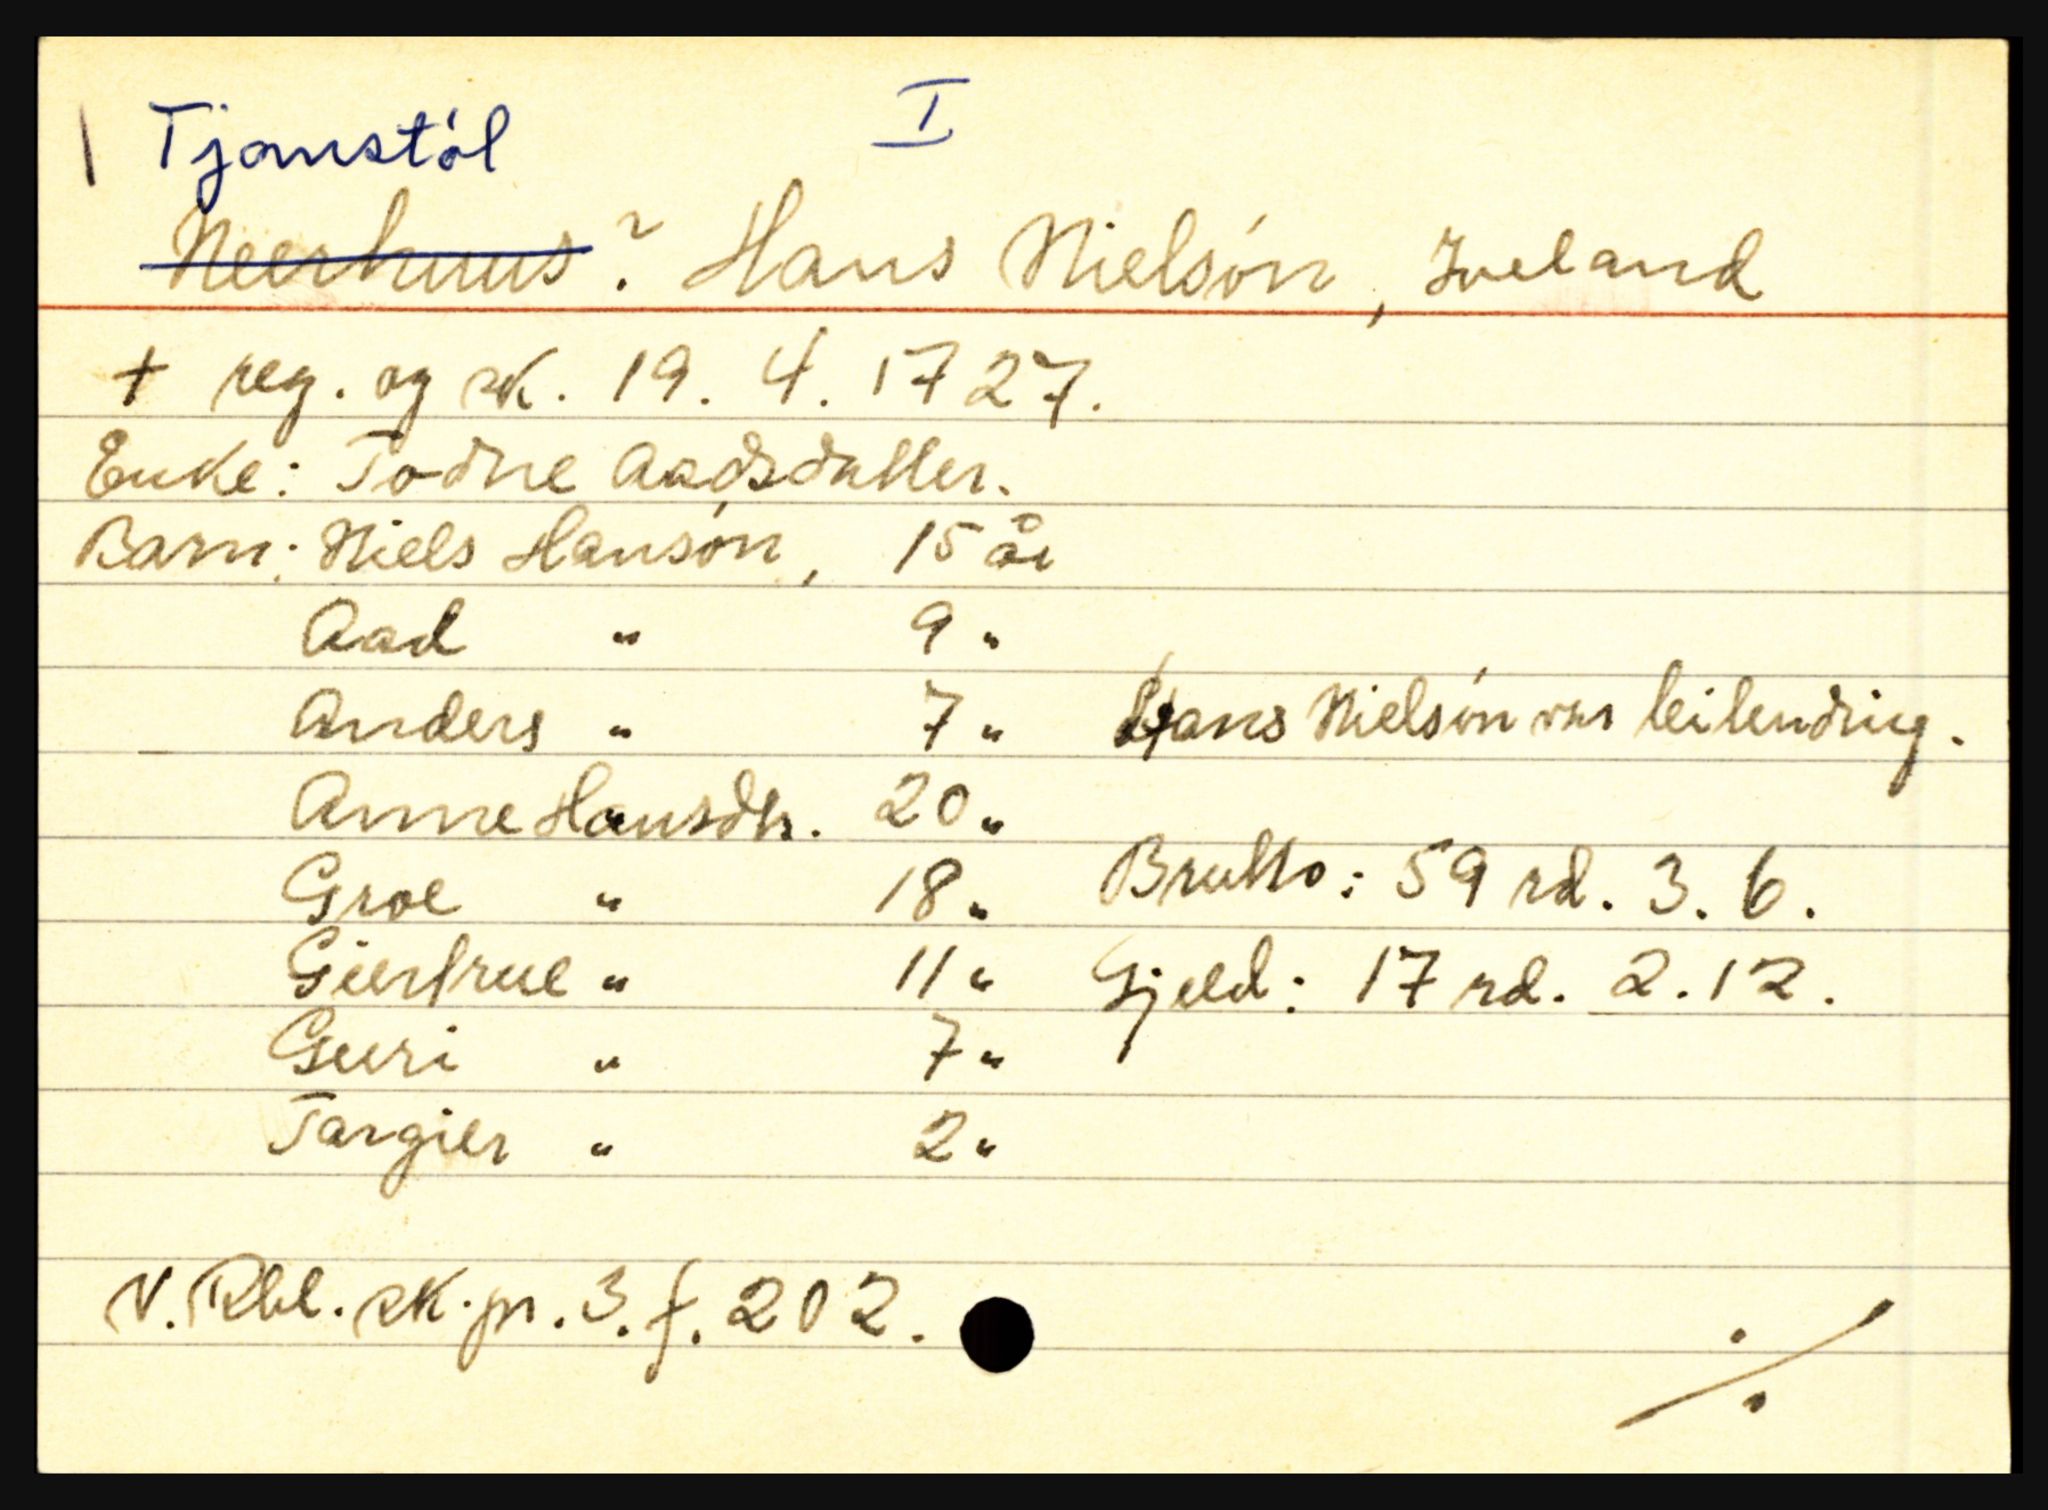 Tjomstøl I
Neerhuus? Hans Nielsøn, Iveland
+ reg. og sk. 19. 4. 1727.
Enke: Todne Aadsdatter.
Barn: Niels Hansøn, 15 år
Aad " 9 "
Anders " 7 " Hans Nielsøn var leilending.
Anne Hansdtr. 20 "
Groe " 18 " Brutto: 59 rd. 3. 6.
Gierfrue " 11 " Gjeld: 17 rd. 2. 12.
Guri " 7 "
Targier " 2 "
N. Rbl. sk. pr. 3. f. 202.